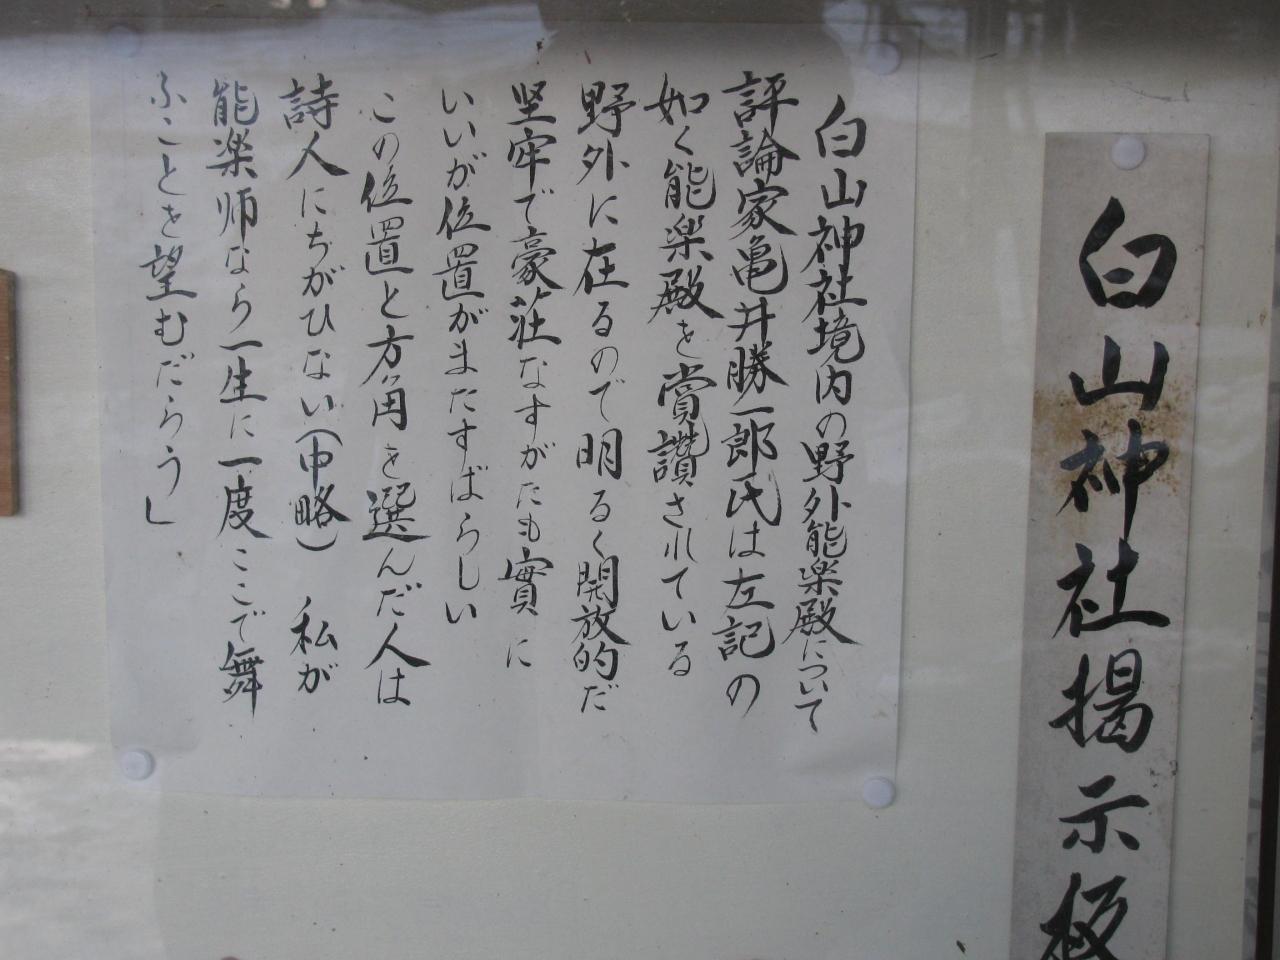 白山神社掲示板
白山神社境内の野外能楽殿について
評論家亀井勝一郎氏は左記の
如く能楽殿を賞讃されている
野外に在るので明るく開放的だ
堅牢で豪荘なすがたも實に
いいが位置がまたすばらしい
この位置と方角を選んだ人は
詩人にちがひない(中略) 私が
能楽师なら一生に一度ここで舞
ふことを望むだらう」